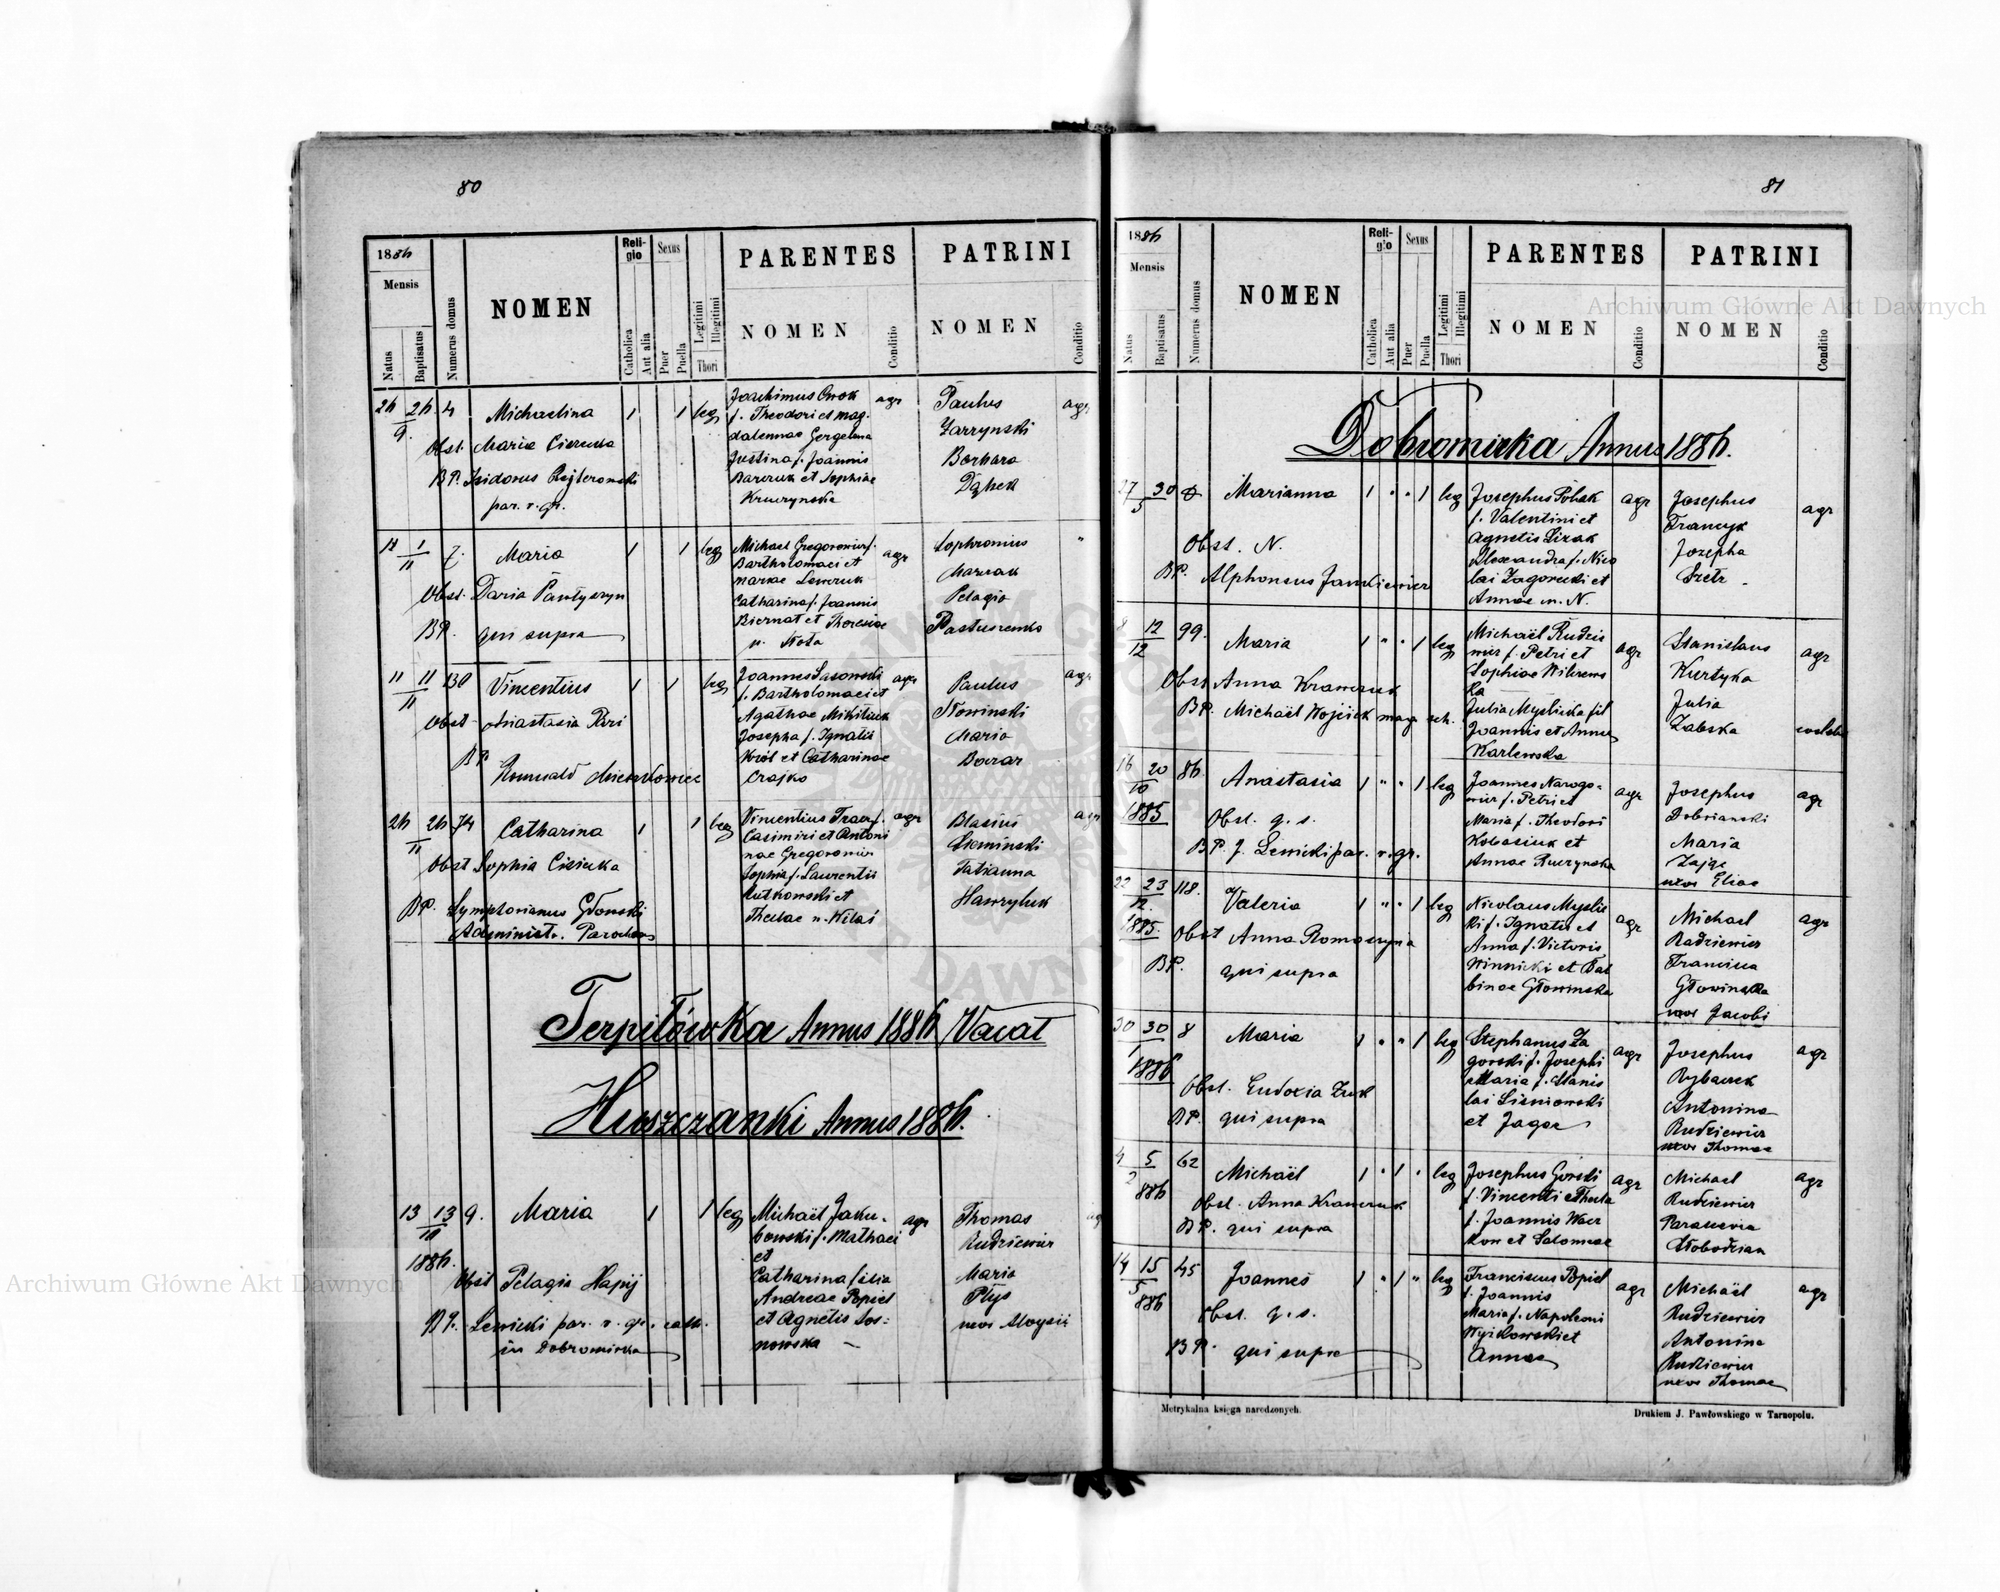 80
1886
Mensis
Natus
Baptisatus
Numerus domus
NOMEN
Reli-
gio
Catholica
Aut alia
Sexus
Puer
Puella
Legitimi
Illegitimi
Thori
PARENTES
NOMEN
Conditio
PATRINI
NOMEN
Conditio
26 26 4 Michaelina 1 1 leg
9.
Obst. Maria
BP. Isidorus
par. r. gr.
Joachimus
f. Theodori et Mag-
dalennae
Justina f. Joannis
et Sophiae
Kruczynska
agr
Paulus
Zarzynski
Barbara
Dąbek
agr
1 7. Maria 1 1 leg
11
Obst. Daria
BP. qui supra
Michael Gregorowicz f.
Bartholomaei et
Mariae
Catharina f. Joannis
Biernat et Theresiae
n. Nota
agr
Sophronius
Pelagia
Pastuszenko
11 11 130 Vincentius 1 1 leg
11
Obst Anastasia
BP.
Romuald
Joannes Sasowski
f. Bartholomaei et
Agathae Mikituk
Josepha f. Ignatii
Król et Catharinae
Czajka
agr
Paulus
Słowinski
Maria
agr
26 26 74 Catharina 1 1 leg
11
Obst Sophia
BP. Symphorianus Głonski
Administr. Parochus
Vincentius
Casimiri et Antoni
nae Gregorowicz
Sophia f. Laurentii
Rutkowski et
Theclae n.
agr
Blasius
Tatianna
Hawryluk
agr
Terpiłówka Annus 1886 Vacat
Huszczanki Annus 1886.
13 13 9. Maria 1 1 leg
10
1886.
Obst Pelagia Hapij
BP. Lewicki par. r. gr. cath.
in Dobromirka
Michaël Jaku-
bowski f. Mathaei
et
Catharina filia
Andreae Popiel
et Agnetis Sos-
nowska
agr
Thomas
Rudziewicz
Maria
Płys
uxor Aloysii
81
1886
Mensis
Natus
Baptisatus
Numerus domus
NOMEN
Reli-
gio
Catholica
Aut alia
Sexus
Puer
Puella
Legitimi
Illegitimi
Thori
PARENTES
NOMEN
Conditio
PATRINI
NOMEN
Conditio
Dobromirka Annus 1886.
27 30 Marianna 1 " " 1 leg
5
Obst. N.
BP. Alphonsus Jankiewicz
Josephus Polak
f. Valentini et
Agnetis
Alexandra f. Nico
lai Zagorecki et
Annae n. N.
agr
Josephus
Franczyk
Josepha
Szetz
agr
8 12 99. Maria 1 " " 1 leg
12
Obst Anna Krawczuk
BP. Michaël Wojciek
Michaël Rudzie
wicz f. Petri et
Sophiae Wilczews
ka
Julia Myslicka fil
Joannis et Annae
Karlewska
agr
Stanislaus
Kurtyka
Julia
Zabska
agr
16 20 86. Anastasia 1 " " 1 leg
10
1885
Obst. q. s.
BP. J. Lewicki par. r. gr.
Joannes Narogo-
wicz f. Petri et
Maria f. Theodori
Kobasiuk et
Annae Ruczynska
agr
Josephus
Dobrianski
Maria
Zając
uxor Eliae
agr
22 23 118. Valeria 1 " " 1 leg
12.
1885.
Obst Anna
BP. qui supra
Nicolaus Myslic
ki f. Ignatii et
Anna f. Victoris
Winnicki et Bal
binae Głowinska
agr
Michael
Radziewicz
Francisca
Głowinska
uxor Jacobi
agr
30 30 8 Maria 1 " " 1 leg
1
1886
Obst. Eudoxia Zuk
BP. qui supra
Stephanus Za
gorski f. Josephi
Maria f. Stanis
lai Lisniowski
et Jagae
agr
Josephus
Rybaczek
Antonina
Rudziewicz
uxor Thomae
agr
4 5 62 Michaël 1 " 1 " leg
2
886
Obst. Anna Krawczuk
BP. qui supra
Josephus Górski
f. Vincenti et Thecla
f. Joannis Wacz
kow et Salomeae
agr
Michael
Rudziewicz
Parascevia
Słobodzian
agr
14 15 45 Joannes 1 " 1 " leg
5
886
Obst. q. s.
BP. qui supra
Franciscus Popiel
f. Joannis
Maria f. Napoleoni
Wyikowski et
Annae
agr
Michaël
Rudziewicz
Antonina
Rudziewicz
uxor Thomae
agr
Metrykalna księga narodzonych.
Drukiem J. Pawłowskiego w Tarnopolu.
Archiwum Główne Akt Dawnych
Archiwum Główne Akt Dawnych